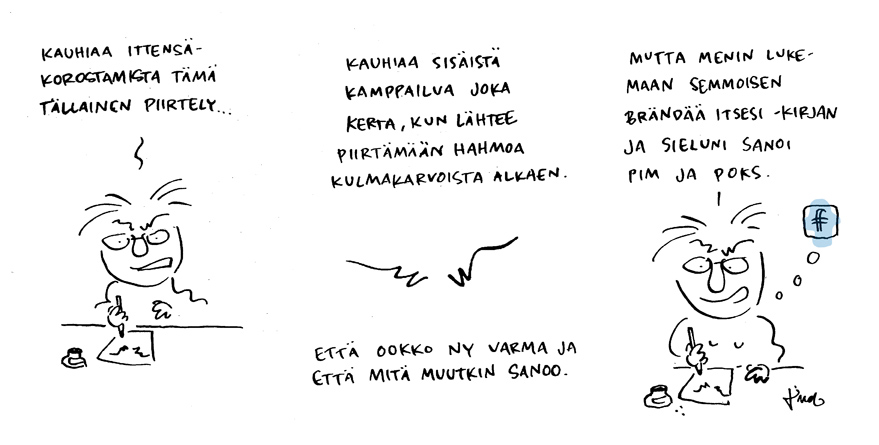 KAUHIAA ITTENSÄ-
KOROSTAMISTA TÄMÄ
TÄLLAINEN PIIRTELY...
KAUHIAA SISÄISTÄ
KAMPPAILUA JOKA
KERTA, KUN LÄHTEE
PIIRTÄMÄÄN HAHMOA
KULMAKARVOISTA ALKAEN.
ETTÄ OOKKO NY VARMA JA
ETTÄ MITÄ MUUTKIN SANOO.
MUTTA MENIN LUKE-
MAAN SEMMOISEN
BRÄNDÄÄ ITSESI -KIRJAN
JA SIELUNI SANOI
PIM JA POKS.